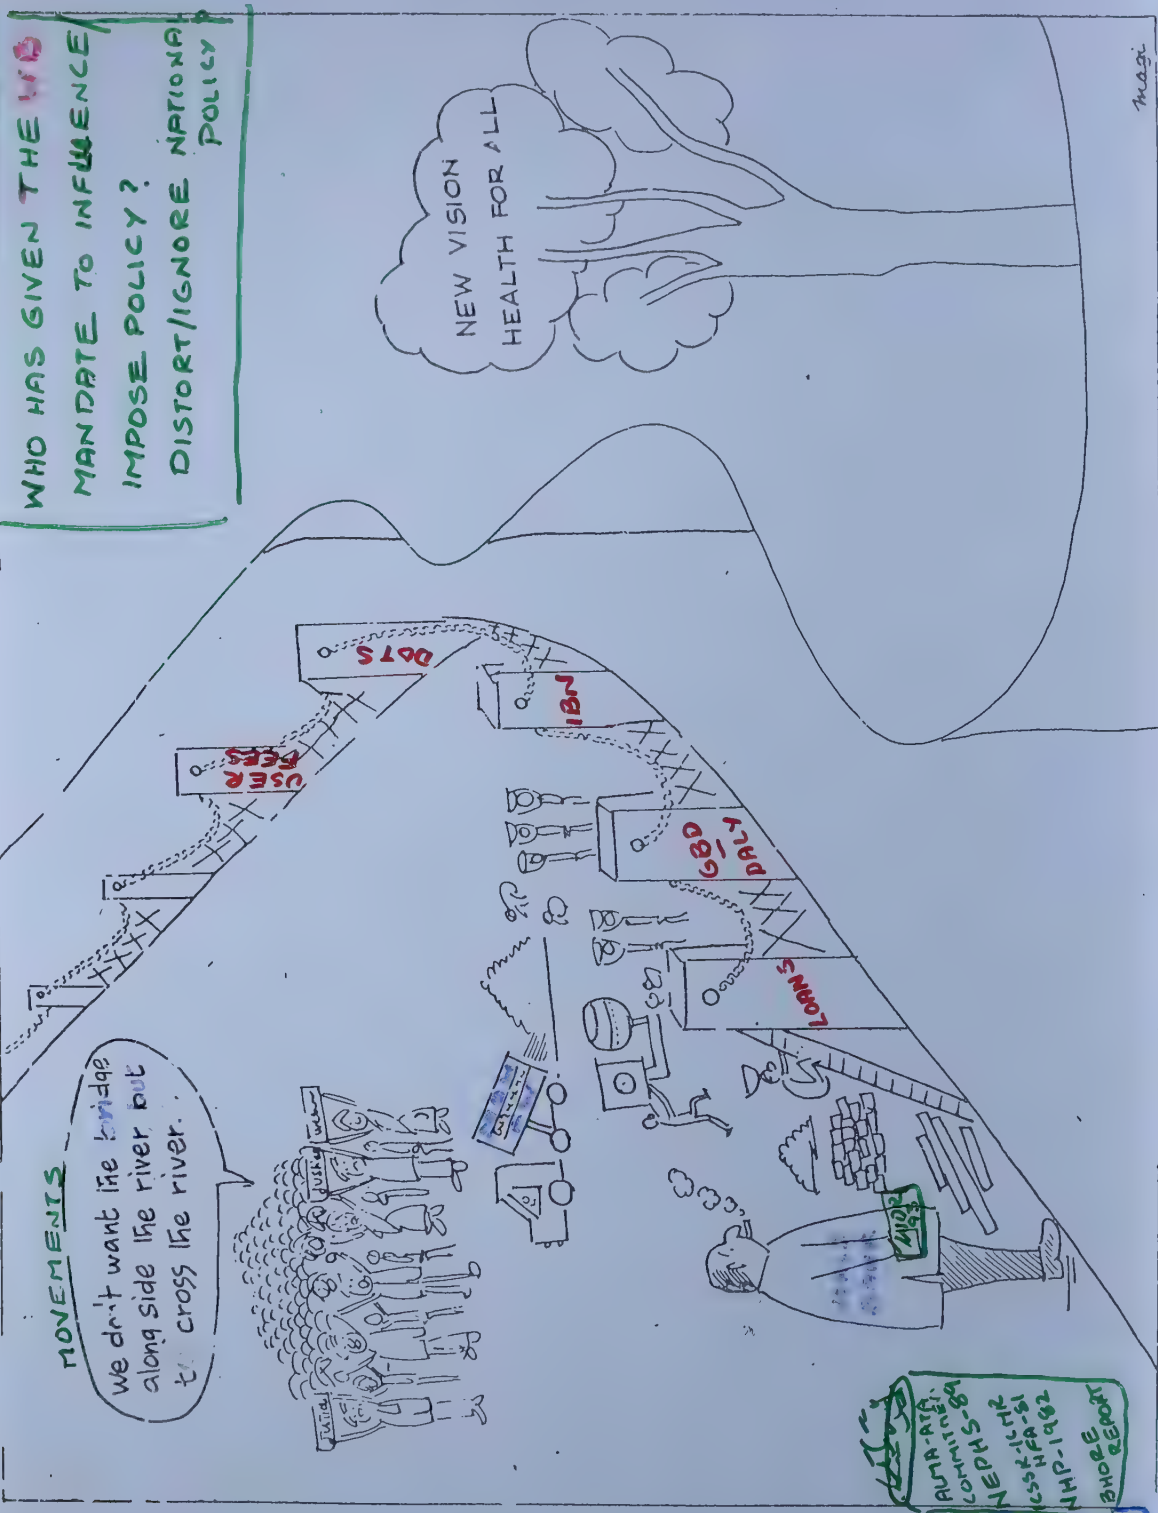 WHO HAS GIVEN THE WB
MANDATE TO INFLUENCE/
IMPOSE POLICY?
DISTORT/IGNORE NATIONAL
POLICY
NEW VISION
HEALTH FOR ALL
MOVEMENTS
We don't want the bridge
along side the river but
to cross the river.
USER
FEES
DOTS
IBN
GBD
DALY
LOANS
WDR
93
ALMA-ATA
COMMITMENT
NEPHS-89
ICSSR-ICMR
HFA-81
NHP-1982
BHORE
REPORT
magi